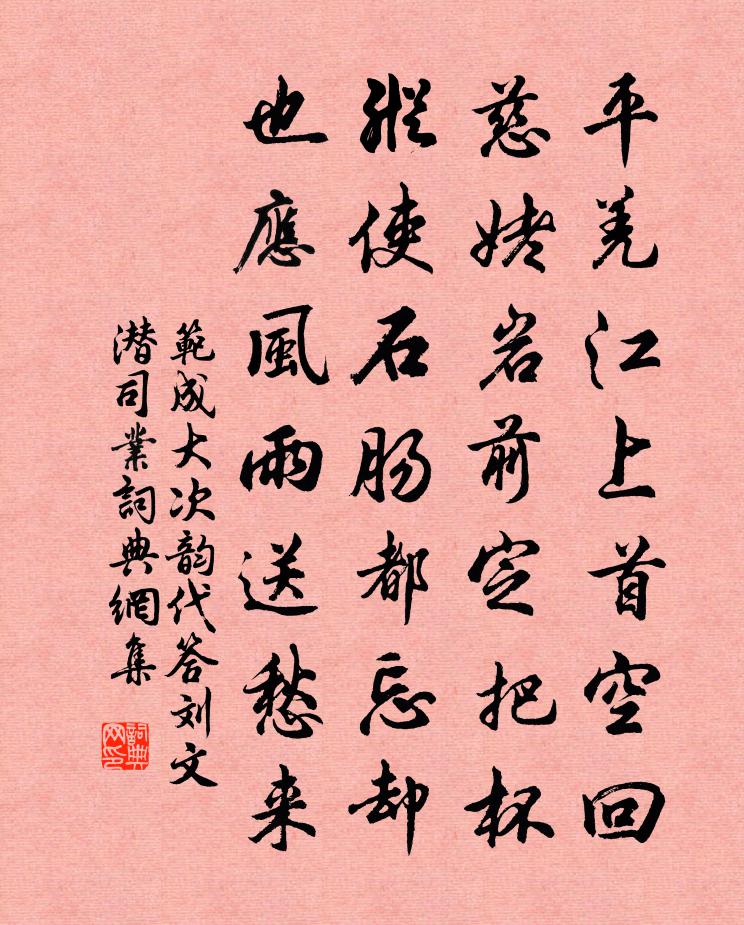 平羌江上首空回
慈姥岩前定把杯
縱使石腸都忘却
也應風雨送愁来
範成大次韵代答刘文
潜司業詞典網集
詞典
网印